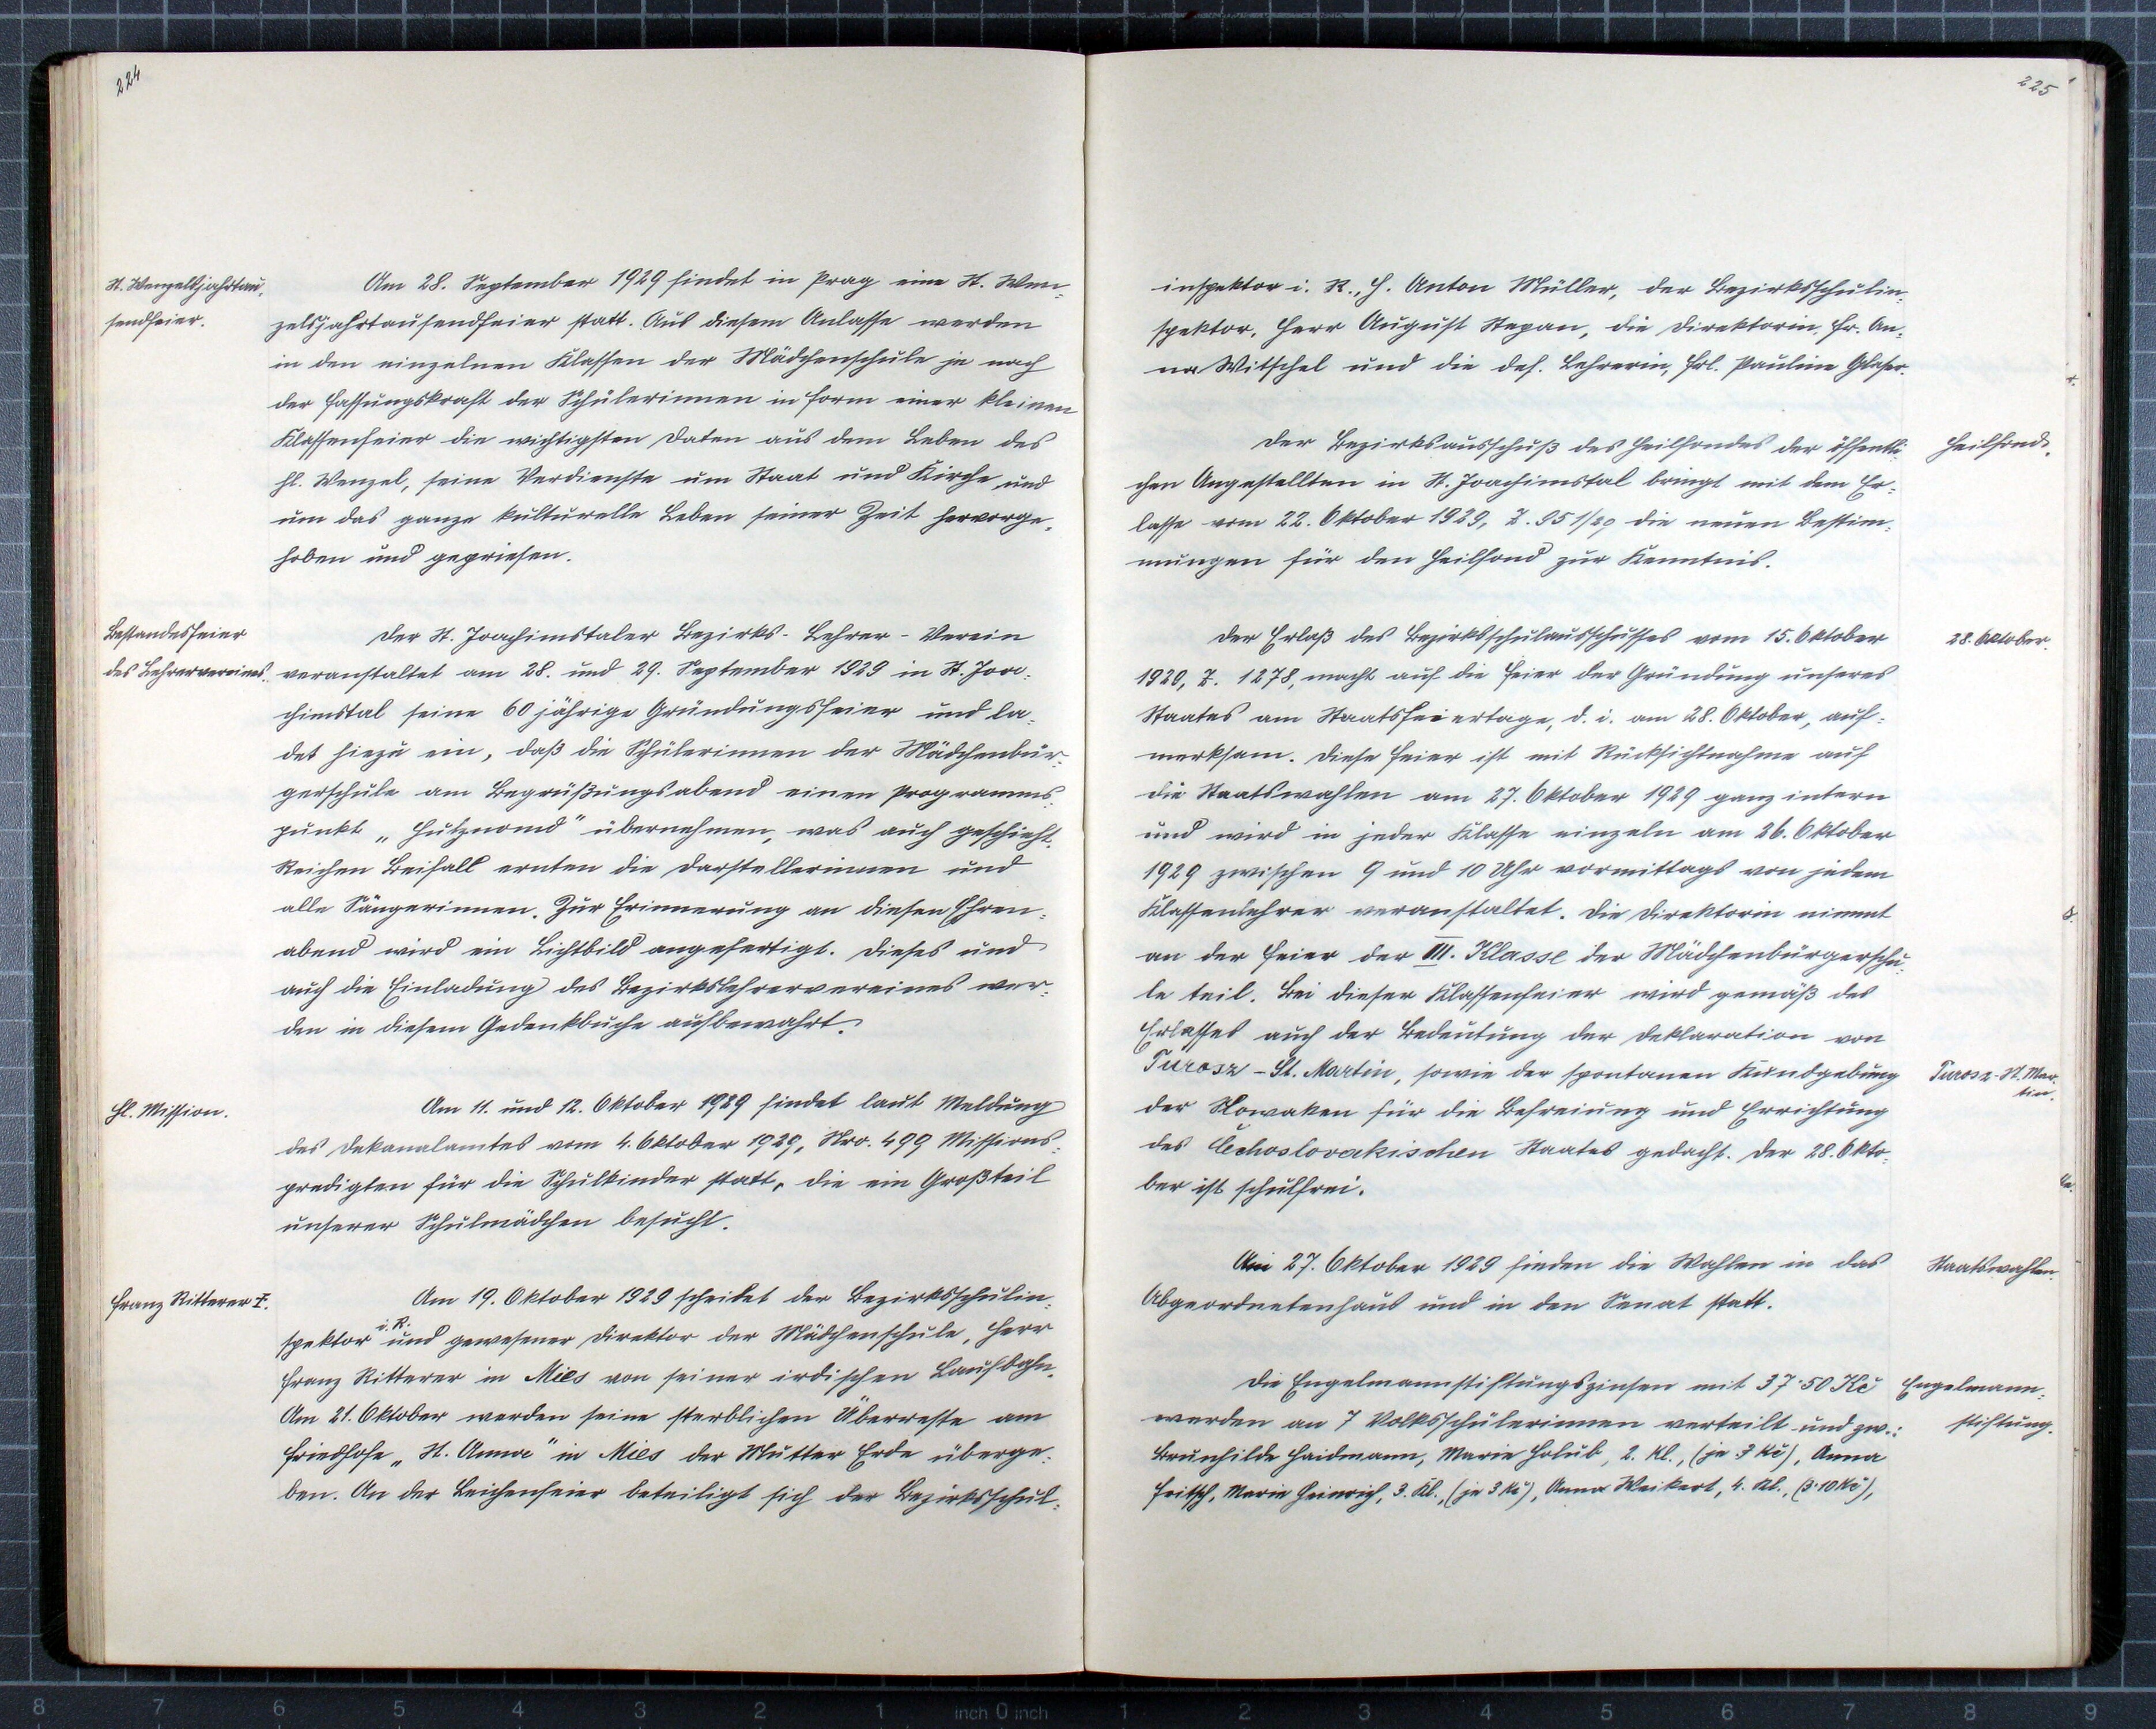 224
St. Wenzelsjahrtau-
sendfeier.
Am 28. September 1929 findet in Prag eine St. Wen-
zelsjahrtausendfeier statt. Aus diesem Anlasse werden
in den einzelnen Klassen der Mädchenschule je nach
der Fassungskraft der Schülerinnen in Form einer kleinen
Klassenfeier die wichtigsten Daten aus dem Leben des
hl. Wenzel, seine Verdienste um Staat und Kirche und
um das ganze kulturelle Leben seiner Zeit hervorge-
hoben und gepriesen.
Bestandesfeier
des Lehrervereines.
Der St. Joachimstaler Bezirks-Lehrer-Verein
veranstaltet am 28. und 29. September 1929 in St. Joa-
chimstal seine 60 jährige Gründungsfeier und la-
det hiezu ein, daß die Schülerinnen der Mädchenbür-
gerschule am Begrüßungsabend einen Programms-
punkt „Hutznomd" übernehmen, was auch geschieht.
Reichen Beifall ernten die Darstellerinnen und
alle Sängerinnen. Zur Erinnerung an diesen Ehren-
abend wird ein Lichtbild angefertigt. Dieses und
auch die Einladung des Bezirkslehrervereines wer-
den in diesem Gedenkbuche aufbewahrt.
Hl. Mission.
Am 11. und 12. Oktober 1929 findet laut Meldung
des Dekanalamtes vom 4. Oktober 1929, Nro. 499 Missions-
predigten für die Schulkinder statt, die ein Großteil
unserer Schulmädchen besucht.
Franz Ritterer †.
Am 19. Oktober 1929 scheidet der Bezirksschulin-
spektor i. R. und gewesener Direktor der Mädchenschule, Herr
Franz Ritterer in Mies von seiner irdischen Laufbahn.
Am 21. Oktober werden seine sterblichen Überreste am
Friedhofe „St. Anna" in Mies der Mutter Erde überge-
ben. An der Leichenfeier beteiligt sich der Bezirksschul-
225
inspektor i. R., H. Anton Müller, der Bezirksschulin-
spektor, Herr August Stepan, die Direktorin, Fr. An-
na Witschel und die def. Lehrerin, Frl. Pauline Glaser.
Der Bezirksausschuß des Heilfondes der öffentli-
chen Angestellten in St. Joachimstal bringt mit dem Er-
lasse vom 22. Oktober 1929, Z. 951/29 die neuen Bestim-
mungen für den Heilfond zur Kenntnis.
Heilfond.
Der Erlaß des Bezirksschulausschusses vom 15. Oktober
1920, Z. 1278, macht auf die Feier der Gründung unseres
Staates am Staatsfeiertage, d. i. am 28. Oktober, auf-
merksam. Diese Feier ist mit Rücksichtnahme auf
die Staatswahlen am 27. Oktober 1929 ganz intern
und wird in jeder Klasse einzeln am 26. Oktober
1929 zwischen 9 und 10 Uhr vormittags von jedem
Klassenlehrer veranstaltet. Die Direktorin nimmt
an der Feier der III. Klasse der Mädchenbürgerschu-
le teil. Bei dieser Klassenfeier wird gemäß des
Erlasses auch der Bedeutung der Deklaration von
Turosz-St. Martin, sowie der spontanen Kundgebung
der Slowaken für die Befreiung und Errichtung
des Čechoslovakischen Staates gedacht. Der 28. Okto-
ber ist schulfrei.
28. Oktober.
Turosz-St. Mar-
tin.
Am 27. Oktober 1929 finden die Wahlen in das
Abgeordnetenhaus und in den Senat statt.
Staatswahlen.
Die Engelmannstiftungszinsen mit 37·50 Kč
werden an 7 Volksschülerinnen verteilt und zw.:
Brunhilde Haidmann, Marie Holub, 2. Kl., (je 3 Kč), Anna
Fritsch, Marie Heinrich, 3. Kl., (je 3 Kč), Anna Weikert, 4. Kl., (3·10 Kč),
Engelmann-
stiftung.